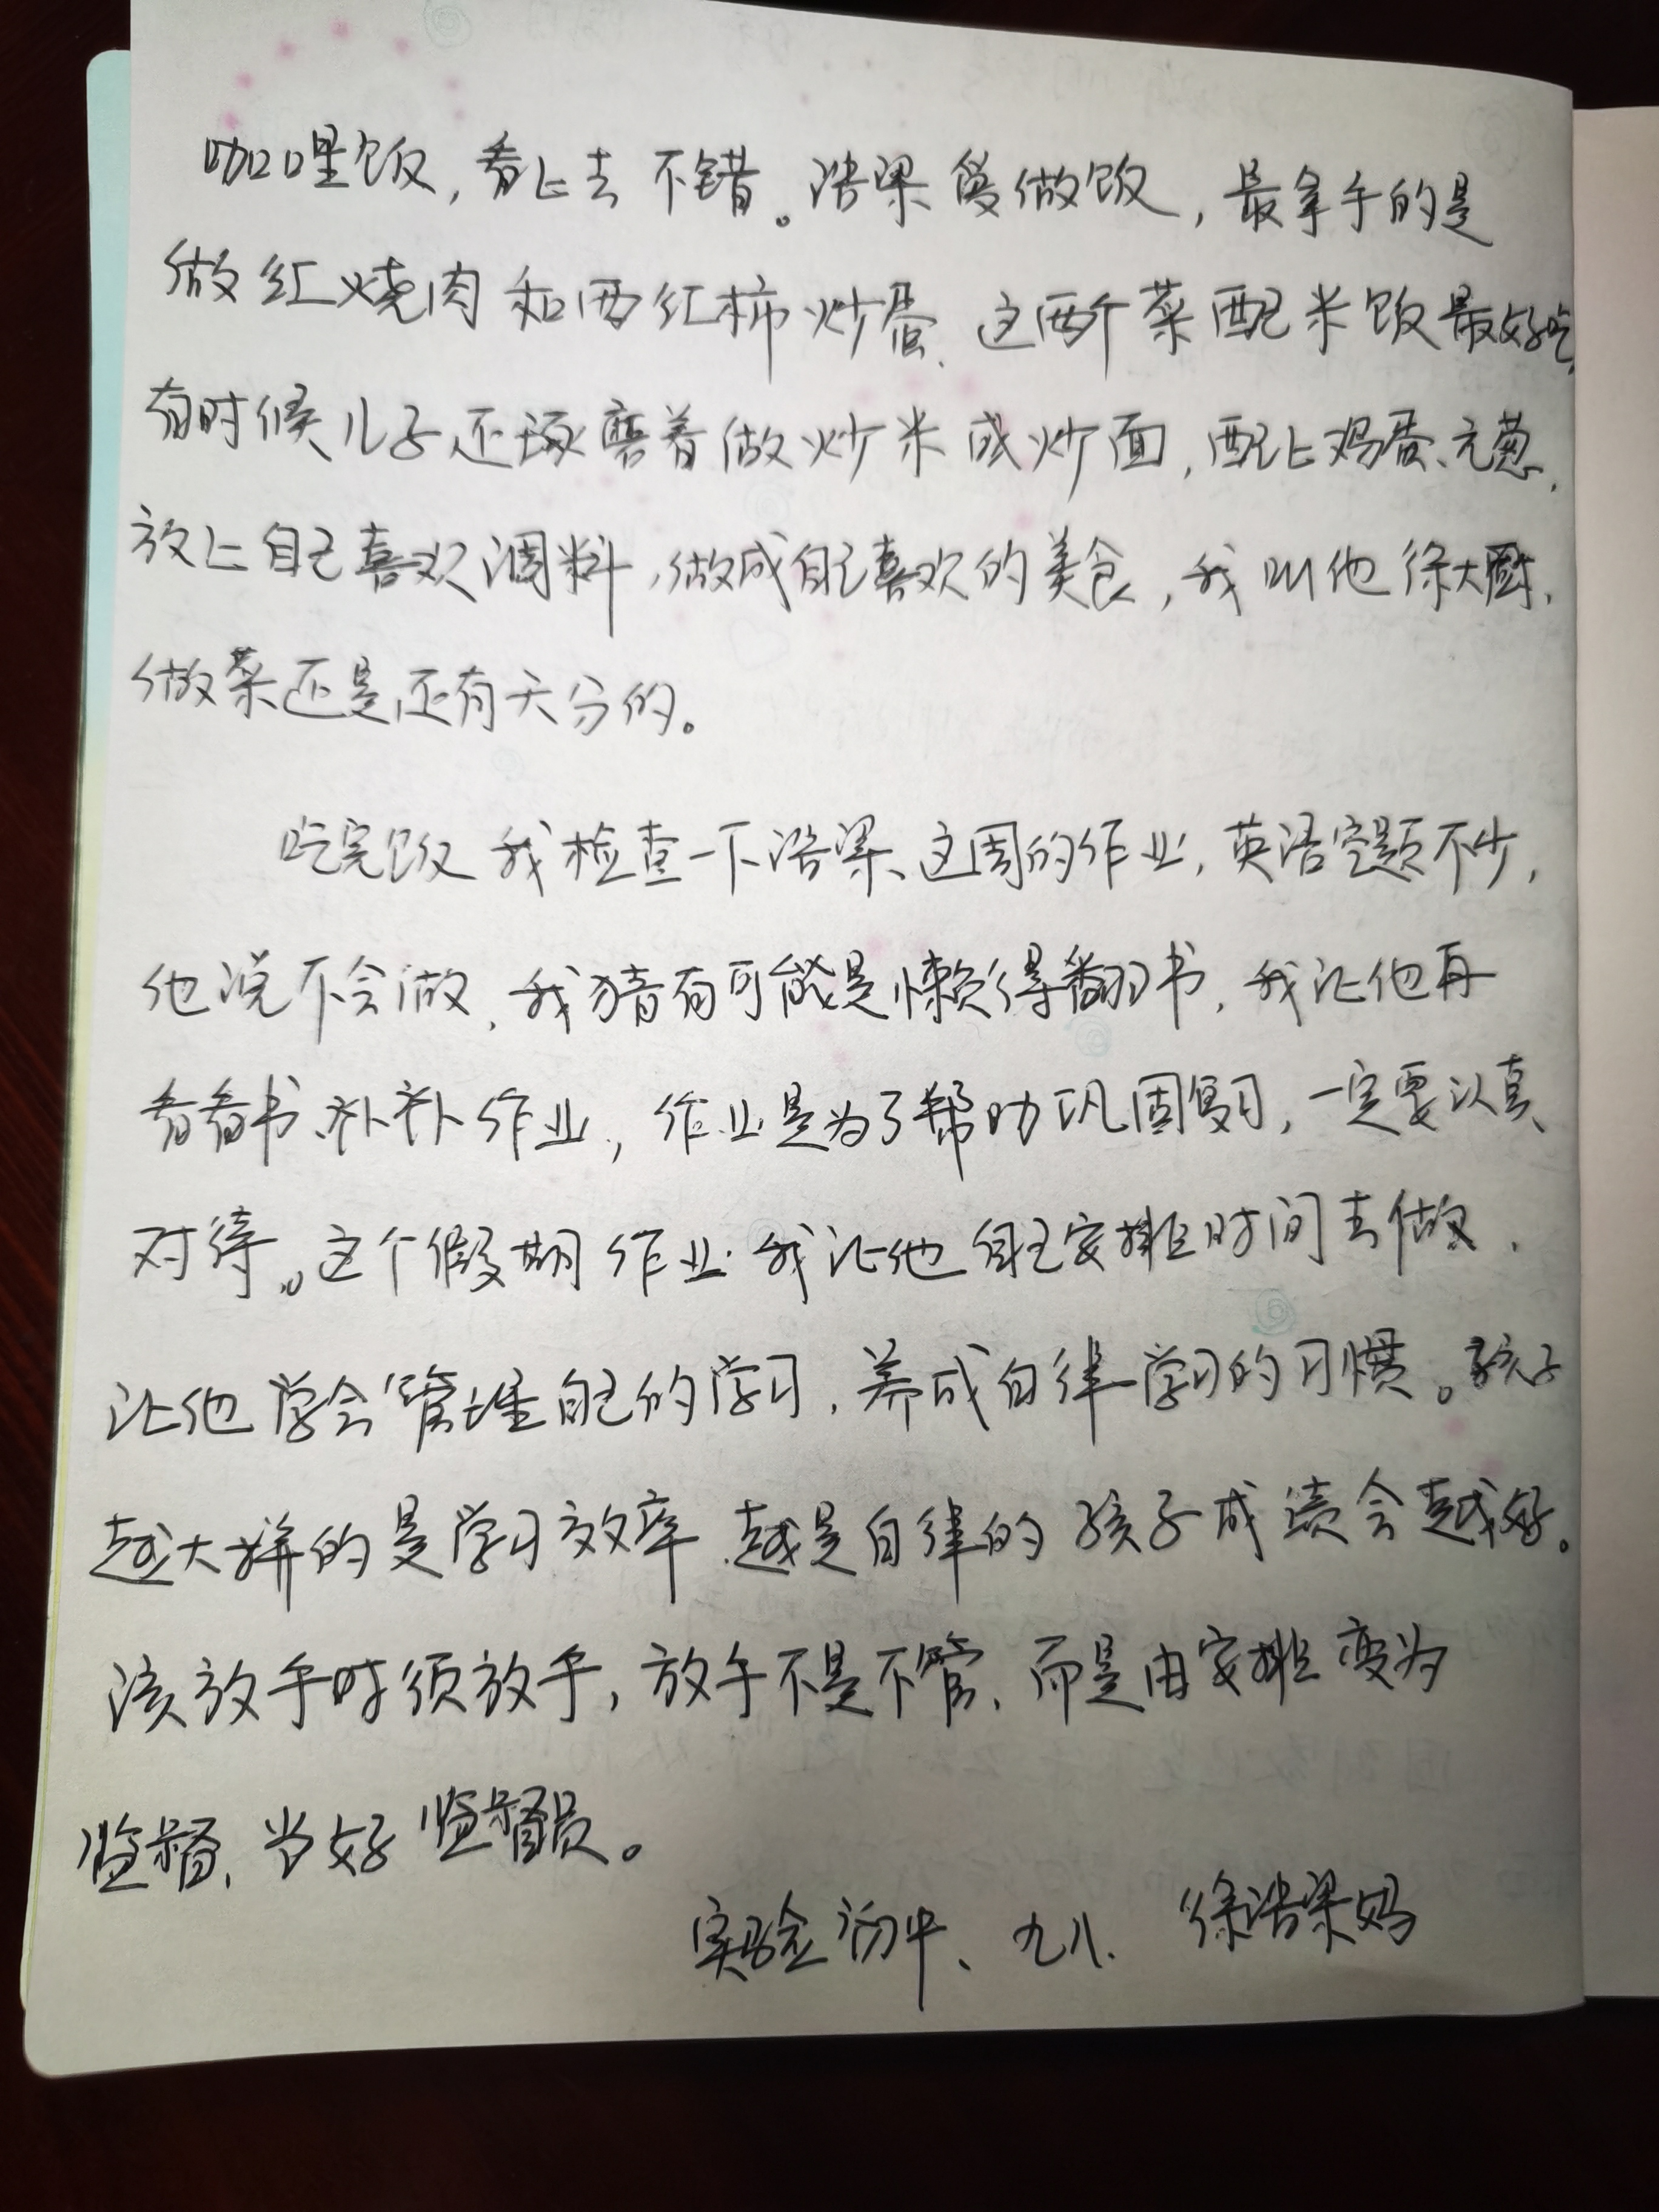 咖哩饭，看上去不错。浩梁爱做饭，最拿手的是
做红烧肉和西红柿炒蛋、这两个菜配米饭最好吃，
有时候儿子还琢磨着做炒米或炒面，配上鸡蛋、元葱，
放上自己喜欢调料，做成自己喜欢的美食，我叫他徐大厨，
做菜还是还有天分的。
吃完饭我检查一下浩梁、这周的作业，英语空题不少，
他说不会做，我猜有可能是懒得翻书，我让他再
看看书、补补作业，作业是为了帮助巩固复习，一定要认真
对待。这个假期作业，我让他自己安排时间去做，
让他学会管理自己的学习，养成自律学习的习惯。孩子
越大拼的是学习效率，越是自律的孩子成绩会越好。
该放手时须放手，放手不是不管，而是由安排变为
监督，当好监督员。
实验初中、九八、徐浩梁妈